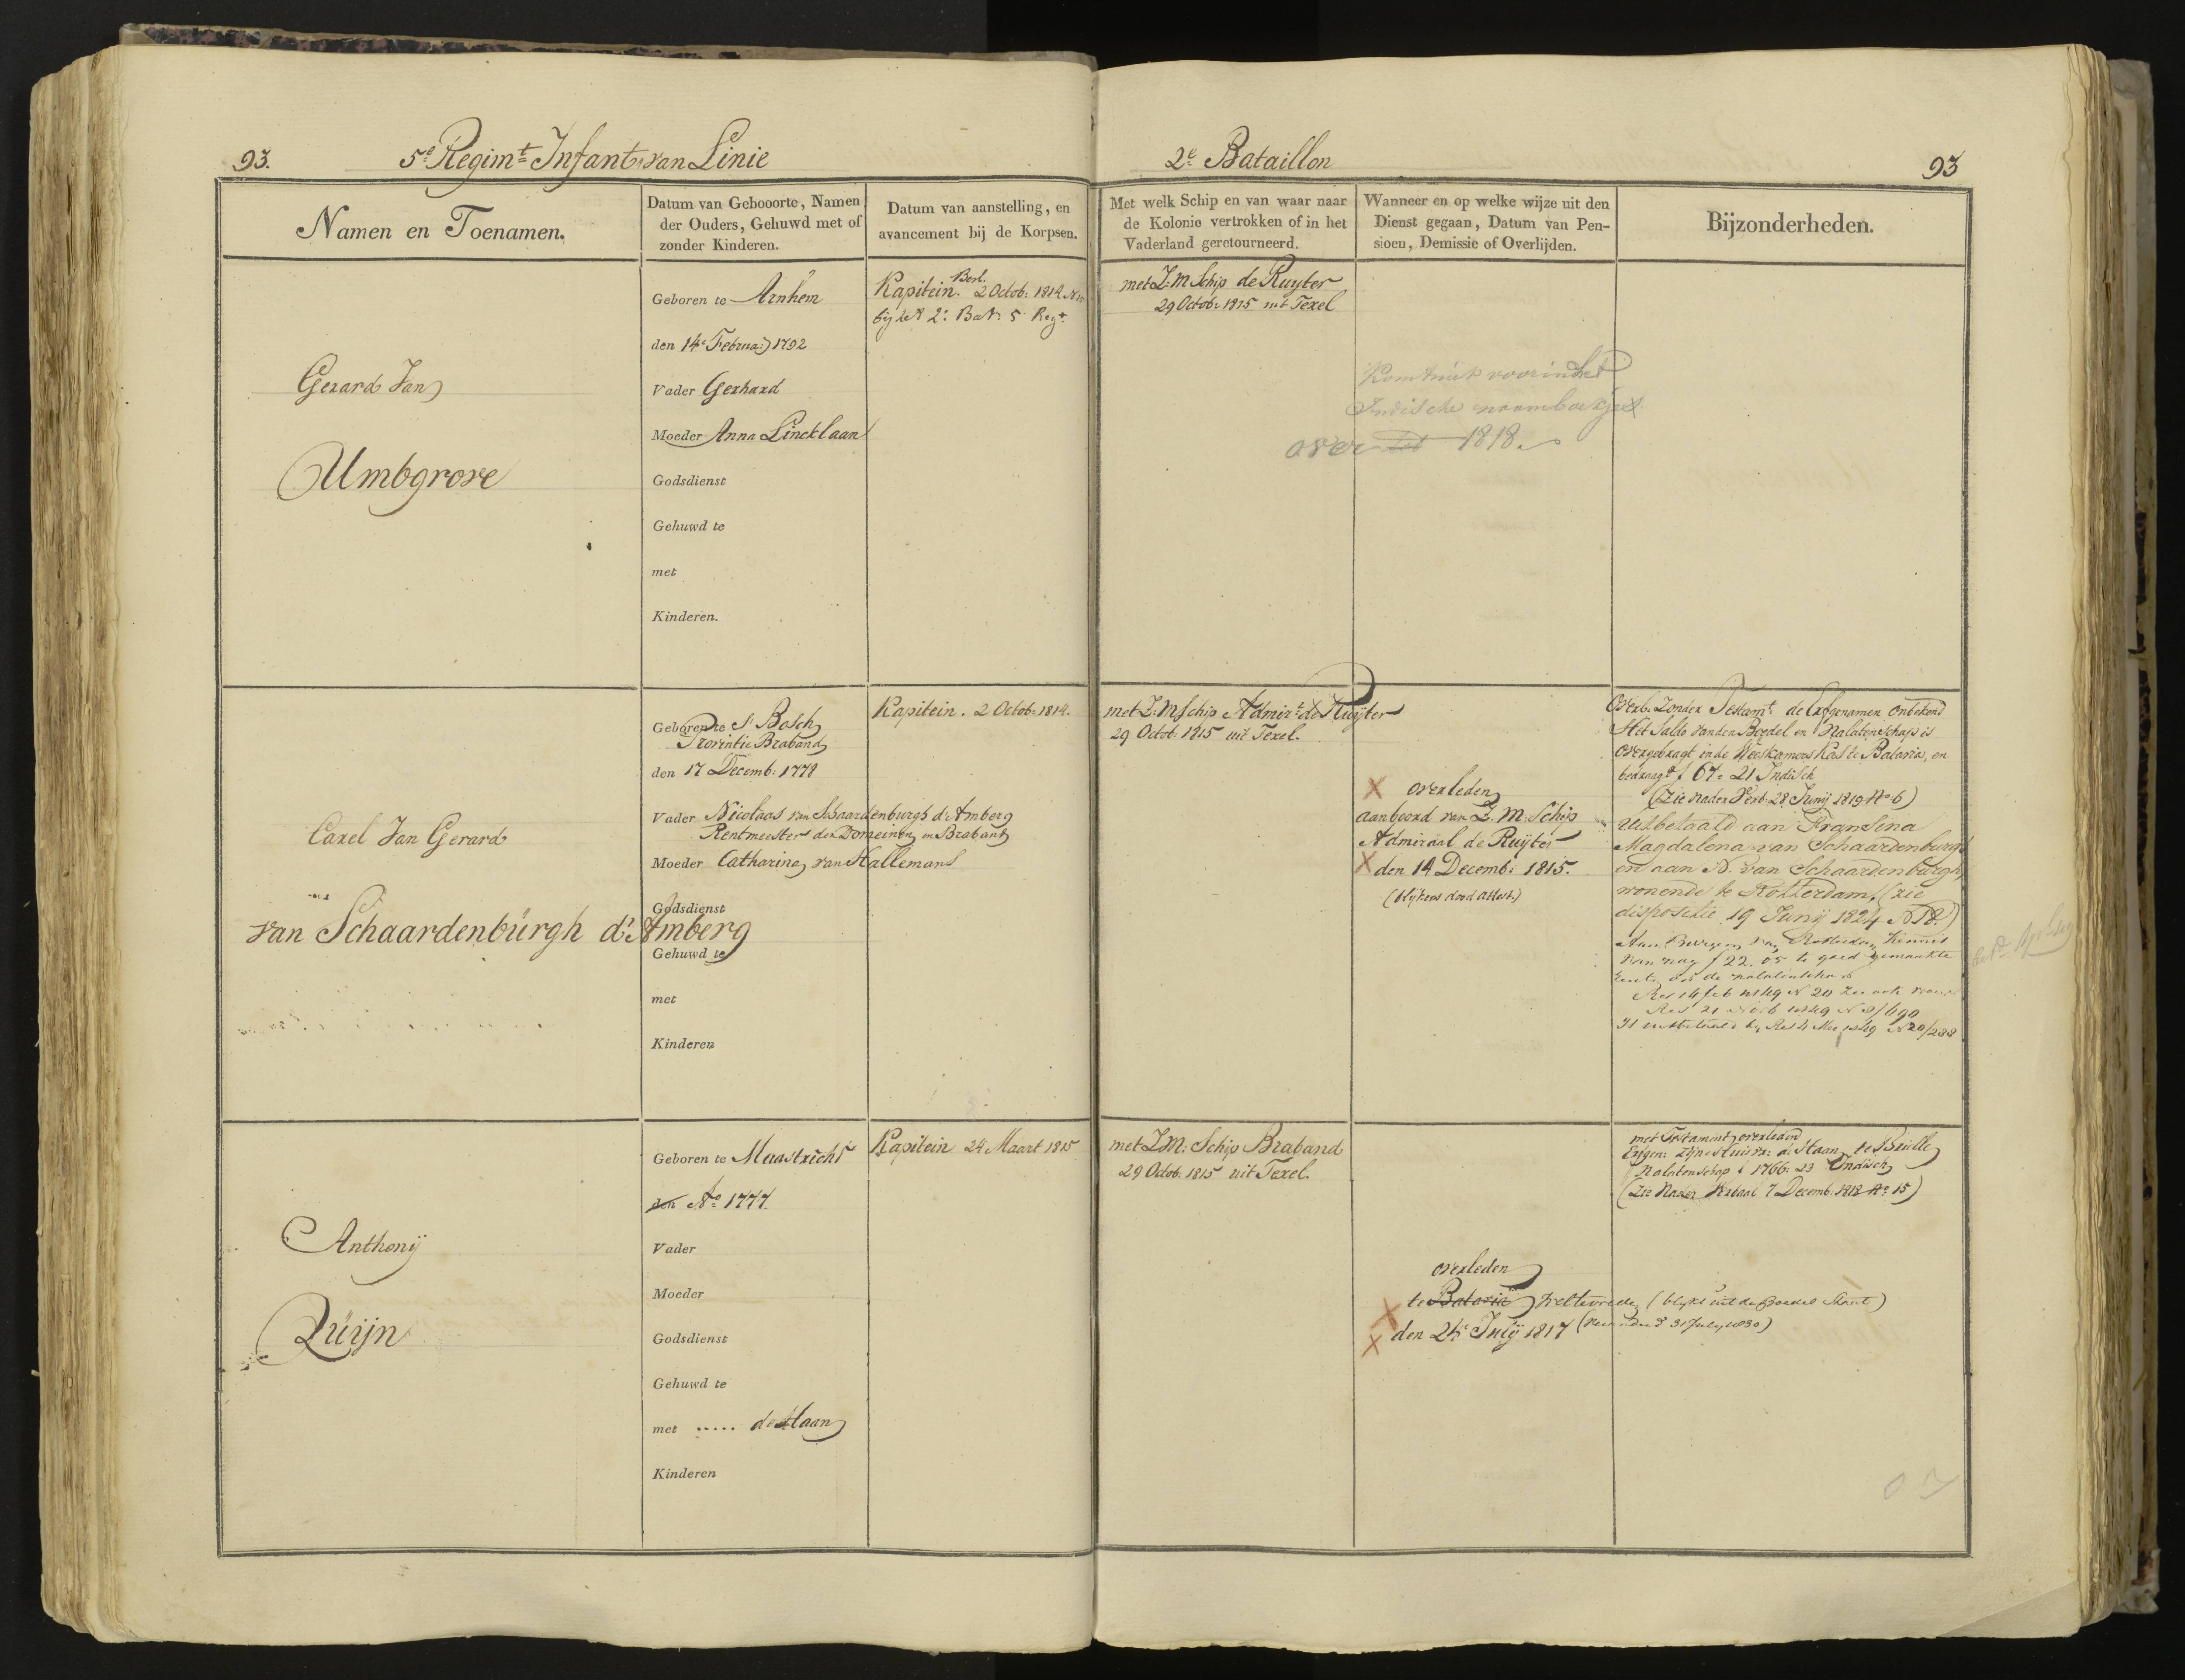 93.
5e Regimt Infant. van Linie
2e Bataillon
93
Namen en Toenamen.
Datum van Gebooorte, Namen
der Ouders, Gehuwd met of
zonder Kinderen.
Datum van aanstelling, en
avancement bij de Korpsen.
Met welk Schip en van waar naar
de Kolonie vertrokken of in het
Vaderland geretourneerd.
Wanneer en op welke wijze uit den
Dienst gegaan, Datum van Pen-
sioen, Demissie of Overlijden.
Bijzonderheden.
Gerard Jan
Umbgrove
Geboren te Arnhem
den 14e Februa: 1792
Vader Gerhard
Moeder Anna Lincklaan
Godsdienst
Gehuwd te
met
Kinderen.
Besl.
Kapitein. 2 Octob: 1814
bij het 2e Bat: 5 Regt
met Z:M Schip de Ruyter
29 Octob: 1815 uit Texel
Komt niet voor in het
Indische naamboekje
over 1818.
Carel Jan Gerard
van Schaardenburgh d'Amberg
Geboren te S: Bosch
Provintie Braband
den 17 Decemb: 1778
Vader Nicolaas van Schaardenburgh d'Amberg
Rentmeester der Domeinen in Brabant
Moeder Catharina van Hallemans
Godsdienst
Gehuwd te
met
Kinderen
Kapitein. 2 Octob: 1814.
met Z:M Schip Admirt de Ruyter
29 Octob: 1815 uit Texel.
overleden
aanboord van Z.M. Schip
Admiraal de Ruijter
den 14 Decemb: 1815.
(blijkens dood attest.)
Overl: Zonder Testamt de Erfgenamen onbekend
Het Saldo van den Boedel en Nalatenschap is
overgebragt in de Weeskamers Kas te Batavia, en
bedraagt f 67= 21 Indisch
(Zie nader Verb: 28 Junij 1819 No 6)
Uitbetaald aan Fransina
Magdalena van Schaardenburgh
en aan N. van Schaardenburgh,
wonende te Rotterdam, (zie
dispositie 19 Junij 1824 N 18)
van nog f 22.05 te goed gemaakte
Anthonij
Quijn
Geboren te Maastricht
den Ao 1777.
Vader
Moeder
Godsdienst
Gehuwd te
met ..... de Haan
Kinderen
Kapitein 24 Maart 1815
met Z.M: Schip Braband
29 Octob: 1815 uit Texel.
overleden
te Batavia Weltevrede (blijkt uit de Boedel Staat)
den 24e Julij 1817 31 July 1830)
met Testament overleden
Erfgen: Zijne Huisvr: de Haan, te Brielle
Nalatenschap f 1766: 23 Indisch
(Zie Nader Verbaal 7 Decemb: 1818 No 15)